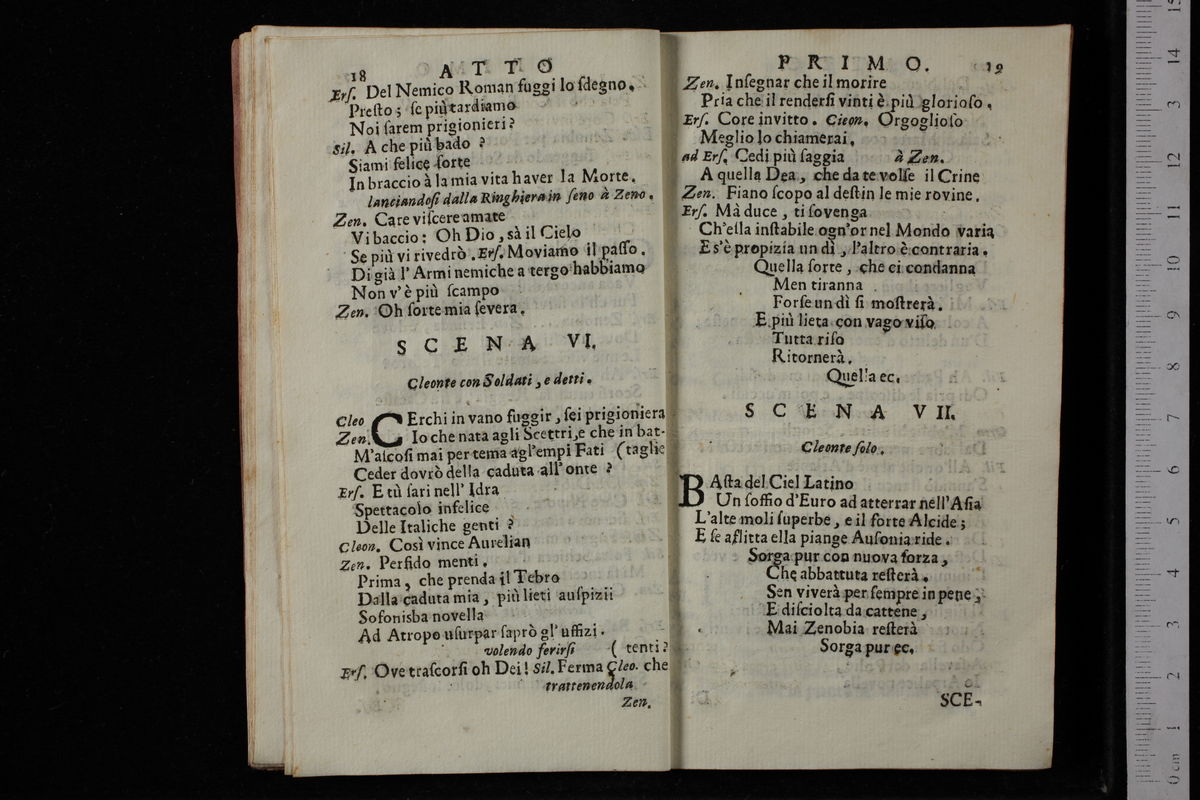 18 ATTO
Ers. Del Nemico Roman fuggi lo sdegno.
Presto; se più tardiamo
Noi sarem prigionieri?
Sil. A che più bado ?
Siami felice sorte
In braccio à la mia vita haver la Morte.
lanciandosi dalla Ringhiera in seno à Zeno.
Zen. Care viscere amate
Vi baccio: Oh Dio, sà il Cielo
Se più vi rivedrò. Ers. Moviamo il passo.
Di già l'Armi nemiche a tergo habbiamo
Non v'è più scampo
Zen. Oh sorte mia severa.
SCENA VI.
Cleonte con Soldati, e detti.
Cleo CErchi in vano fuggir, sei prigioniera
Zen. Io che nata agli Scettri, e che in bat-
M'ascosi mai per tema agl'empi Fati (taglie
Ceder dovrò della caduta all'onte ?
Ers. E tù sari nell' Idra
Spettacolo infelice
Delle Italiche genti ?
Cleon. Così vince Aurelian
Zen. Perfido menti.
Prima, che prenda il Tebro
Dalla caduta mia, più lieti auspizii
Sofonisba novella
Ad Atropo usurpar saprò gl'uffizi.
volendo ferirsi ( tenti?
Ers. Ove trascorsi oh Dei! Sil. Ferma Cleo. che
trattenendola
Zen.
PRIMO. 19
Zen. Insegnar che il morire
Pria che il rendersi vinti è più glorioso.
Ers. Core invitto. Cleon. Orgoglioso
Meglio lo chiamerai.
ad Ers. Cedi più saggia à Zen.
A quella Dea, che da te volse il Crine
Zen. Fiano scopo al destin le mie rovine.
Ers. Mà duce, ti sovenga
Ch'ella instabile ogn'or nel Mondo varia
E s'è propizia un dì, l'altro è contraria.
Quella sorte, che ci condanna
Men tiranna
Forse un dì si mostrerà.
E più lieta con vago viso
Tutta riso
Ritornerà.
Quella ec.
SCENA VII.
Cleonte solo.
BAsta del Ciel Latino
Un soffio d'Euro ad atterrar nell'Asia
L'alte moli superbe, e il forte Alcide;
E se aflitta ella piange Ausonia ride.
Sorga pur con nuova forza,
Che abbattuta resterà.
Sen viverà per sempre in pene,
E disciolta da cattene,
Mai Zenobia resterà
Sorga pur ec.
SCE-